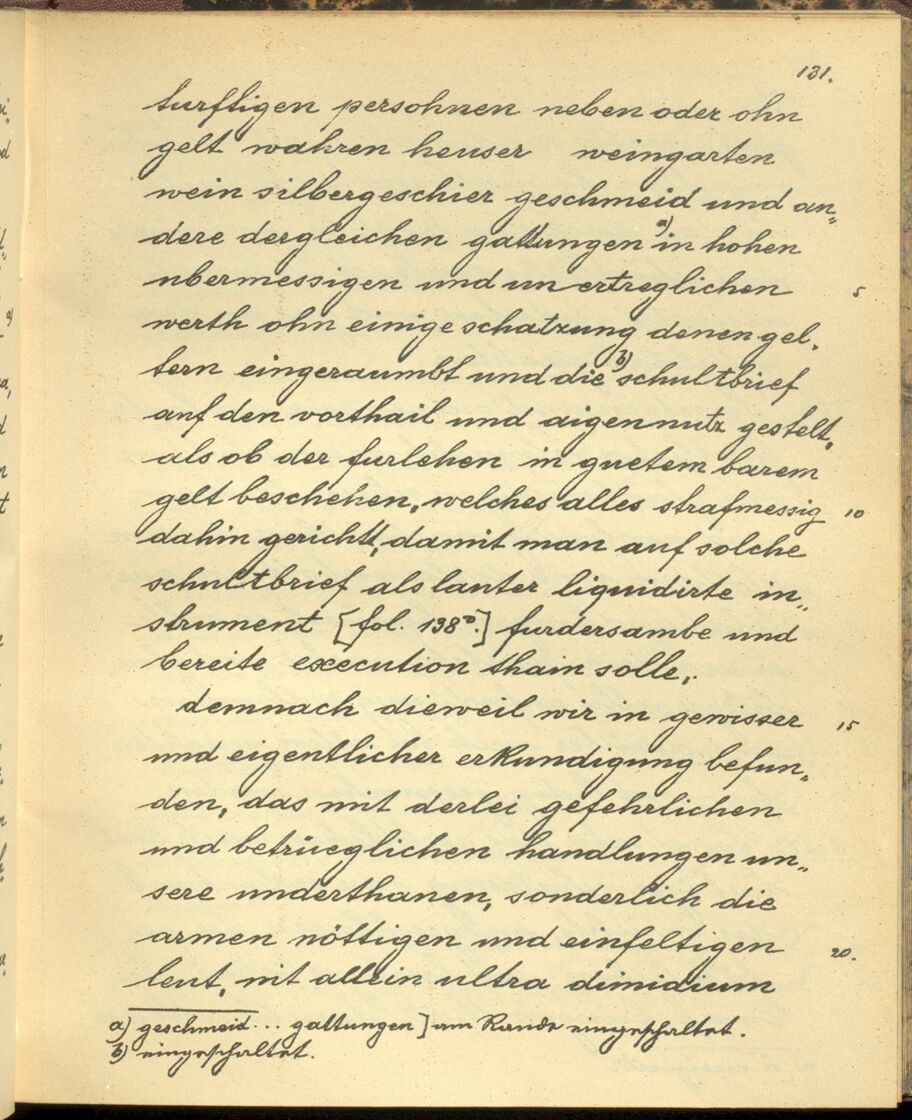 131.
turftigen persohnen neben oder ohn
gelt wahren heuser weingarten
wein silbergeschier geschmeid und an„
dere dergleichen gattungen a) in hohen
ubermessigen und unertreglichen 5
werth ohn einige schatzung denen gel„
tern eingeraumbt und die b) schultbrief
auf den vorthail und aigennutz gestelt,
als ob der furlehen in guetem barem
gelt beschehen, welches alles strafmessig 10
dahin gericht, damit man auf solche
schultbrief als lauter liquidirte in„
strument [fol. 138v.] furdersambe und
bereite execution thain solle,.
demnach dieweil wir in gewisser 15
und eigentlicher erkundigung befun„
den, das mit derlei gefehrlichen
und betrüeglichen handlungen un„
sere underthanen, sonderlich die
armen nöttigen und einfeltigen 20.
leut, nit allein ultra dimidium
a) geschmeid... gattungen] am Rande eingeschaltet.
b) eingeschaltet.